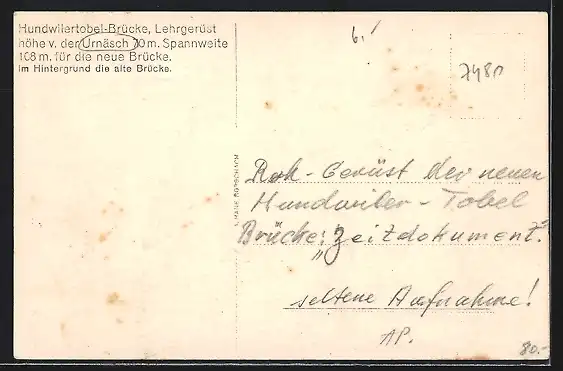 Hundwilertobel-Brücke, Lehrgerüst
höhe v. der Urnäsch 70 m. Spannweite
108 m. für die neue Brücke.
im Hintergrund die alte Brücke.
6.
7480
Roh-Gerüst der neuen
Hundwiler-Tobel
Brücke: "Zeitdokument."
seltene Aufnahme!
AP.
80.-